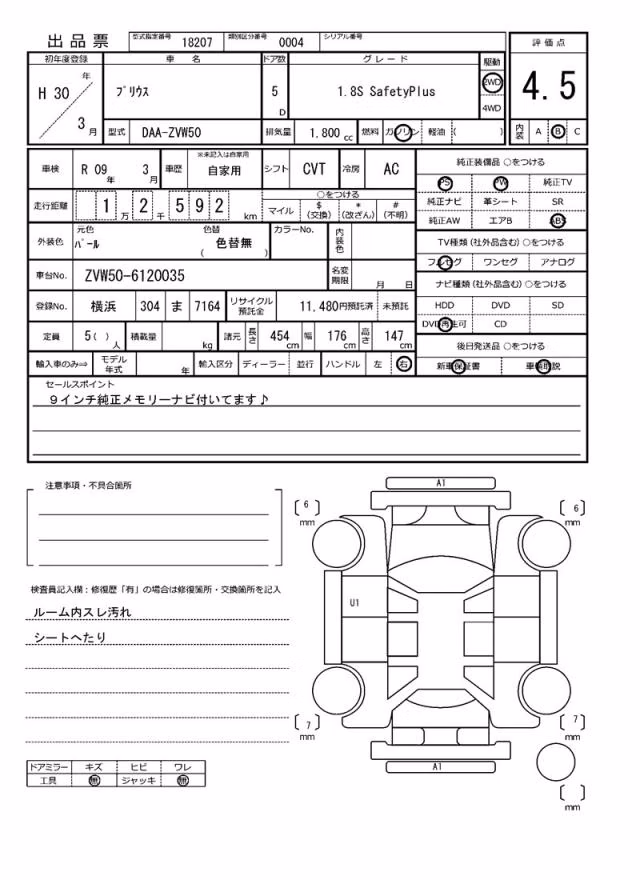 出品票 型式指定番号 18207 類別区分番号 0004 シリアル番号
初年度登録 車名 ドア数 グレード 駆動 評価点
H 30 年 3 月 ﾌﾟﾘｳｽ 5 D 1.8S SafetyPlus 2WD 4WD 4.5
型式 DAA-ZVW50 排気量 1.800 cc 燃料 ガソリン 軽油 ( ) 内装 A B C
車検 R 09 年 3 月 車歴 ※未記入は自家用 自家用 シフト CVT 冷房 AC
走行距離 1 万 2 千 5 9 2 km ○をつける マイル $ (交換) * (改ざん) # (不明)
外装色 元色 ﾊﾟｰﾙ 色替 色替無 ( ) カラーNo. 内装色
車台No. ZVW50-6120035 名変期限 月 日
登録No. 横浜 304 ま 7164 リサイクル預託金 11,480円預託済 未預託
定員 5( ) 人 積載量 kg 諸元 長さ 454 cm 幅 176 cm 高さ 147 cm
輸入車のみ⇒ モデル年式 年 輸入区分 ディーラー 並行 ハンドル 左 右
純正装備品 ○をつける
PS PW 純正TV
純正ナビ 革シート SR
純正AW エアB ABS
TV種類 (社外品含む) ○をつける
フルセグ ワンセグ アナログ
ナビ種類 (社外品含む) ○をつける
HDD DVD SD
DVD再生可 CD
後日発送品 ○をつける
新車保証書 車輌取説
セールスポイント
９インチ純正メモリーナビ付いてます♪
注意事項・不具合箇所
検査員記入欄：修復歴「有」の場合は修復箇所・交換箇所を記入
ルーム内スレ汚れ
シートへたり
ドアミラー キズ ヒビ ワレ
工具 無 ジャッキ 無
A1
[ 6 ] mm
[ 6 ] mm
U1
[ 7 ] mm
[ 7 ] mm
A1
[ ] mm